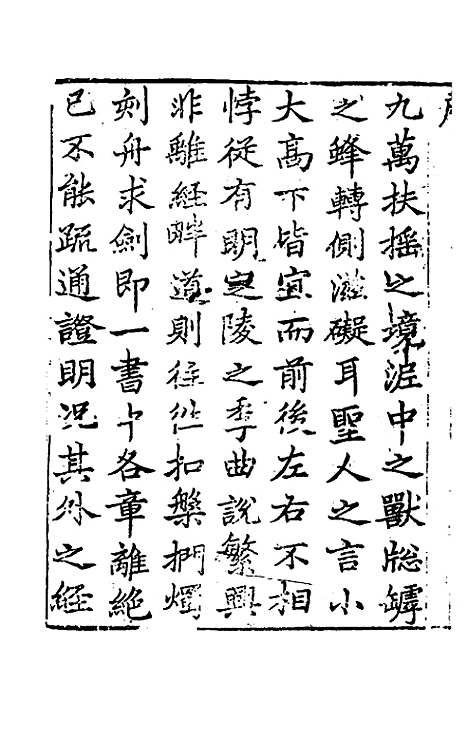 九萬扶搖之境泥中之獸牕罅
之蜂轉側滋礙耳聖人之言小
大高下皆宜而前後左右不相
悖從有明定陵之季曲說繁興
非離經畔道則往往扣槃捫燭
刻舟求劍即一書中各章離絶
已不能疏通證明况其外之經